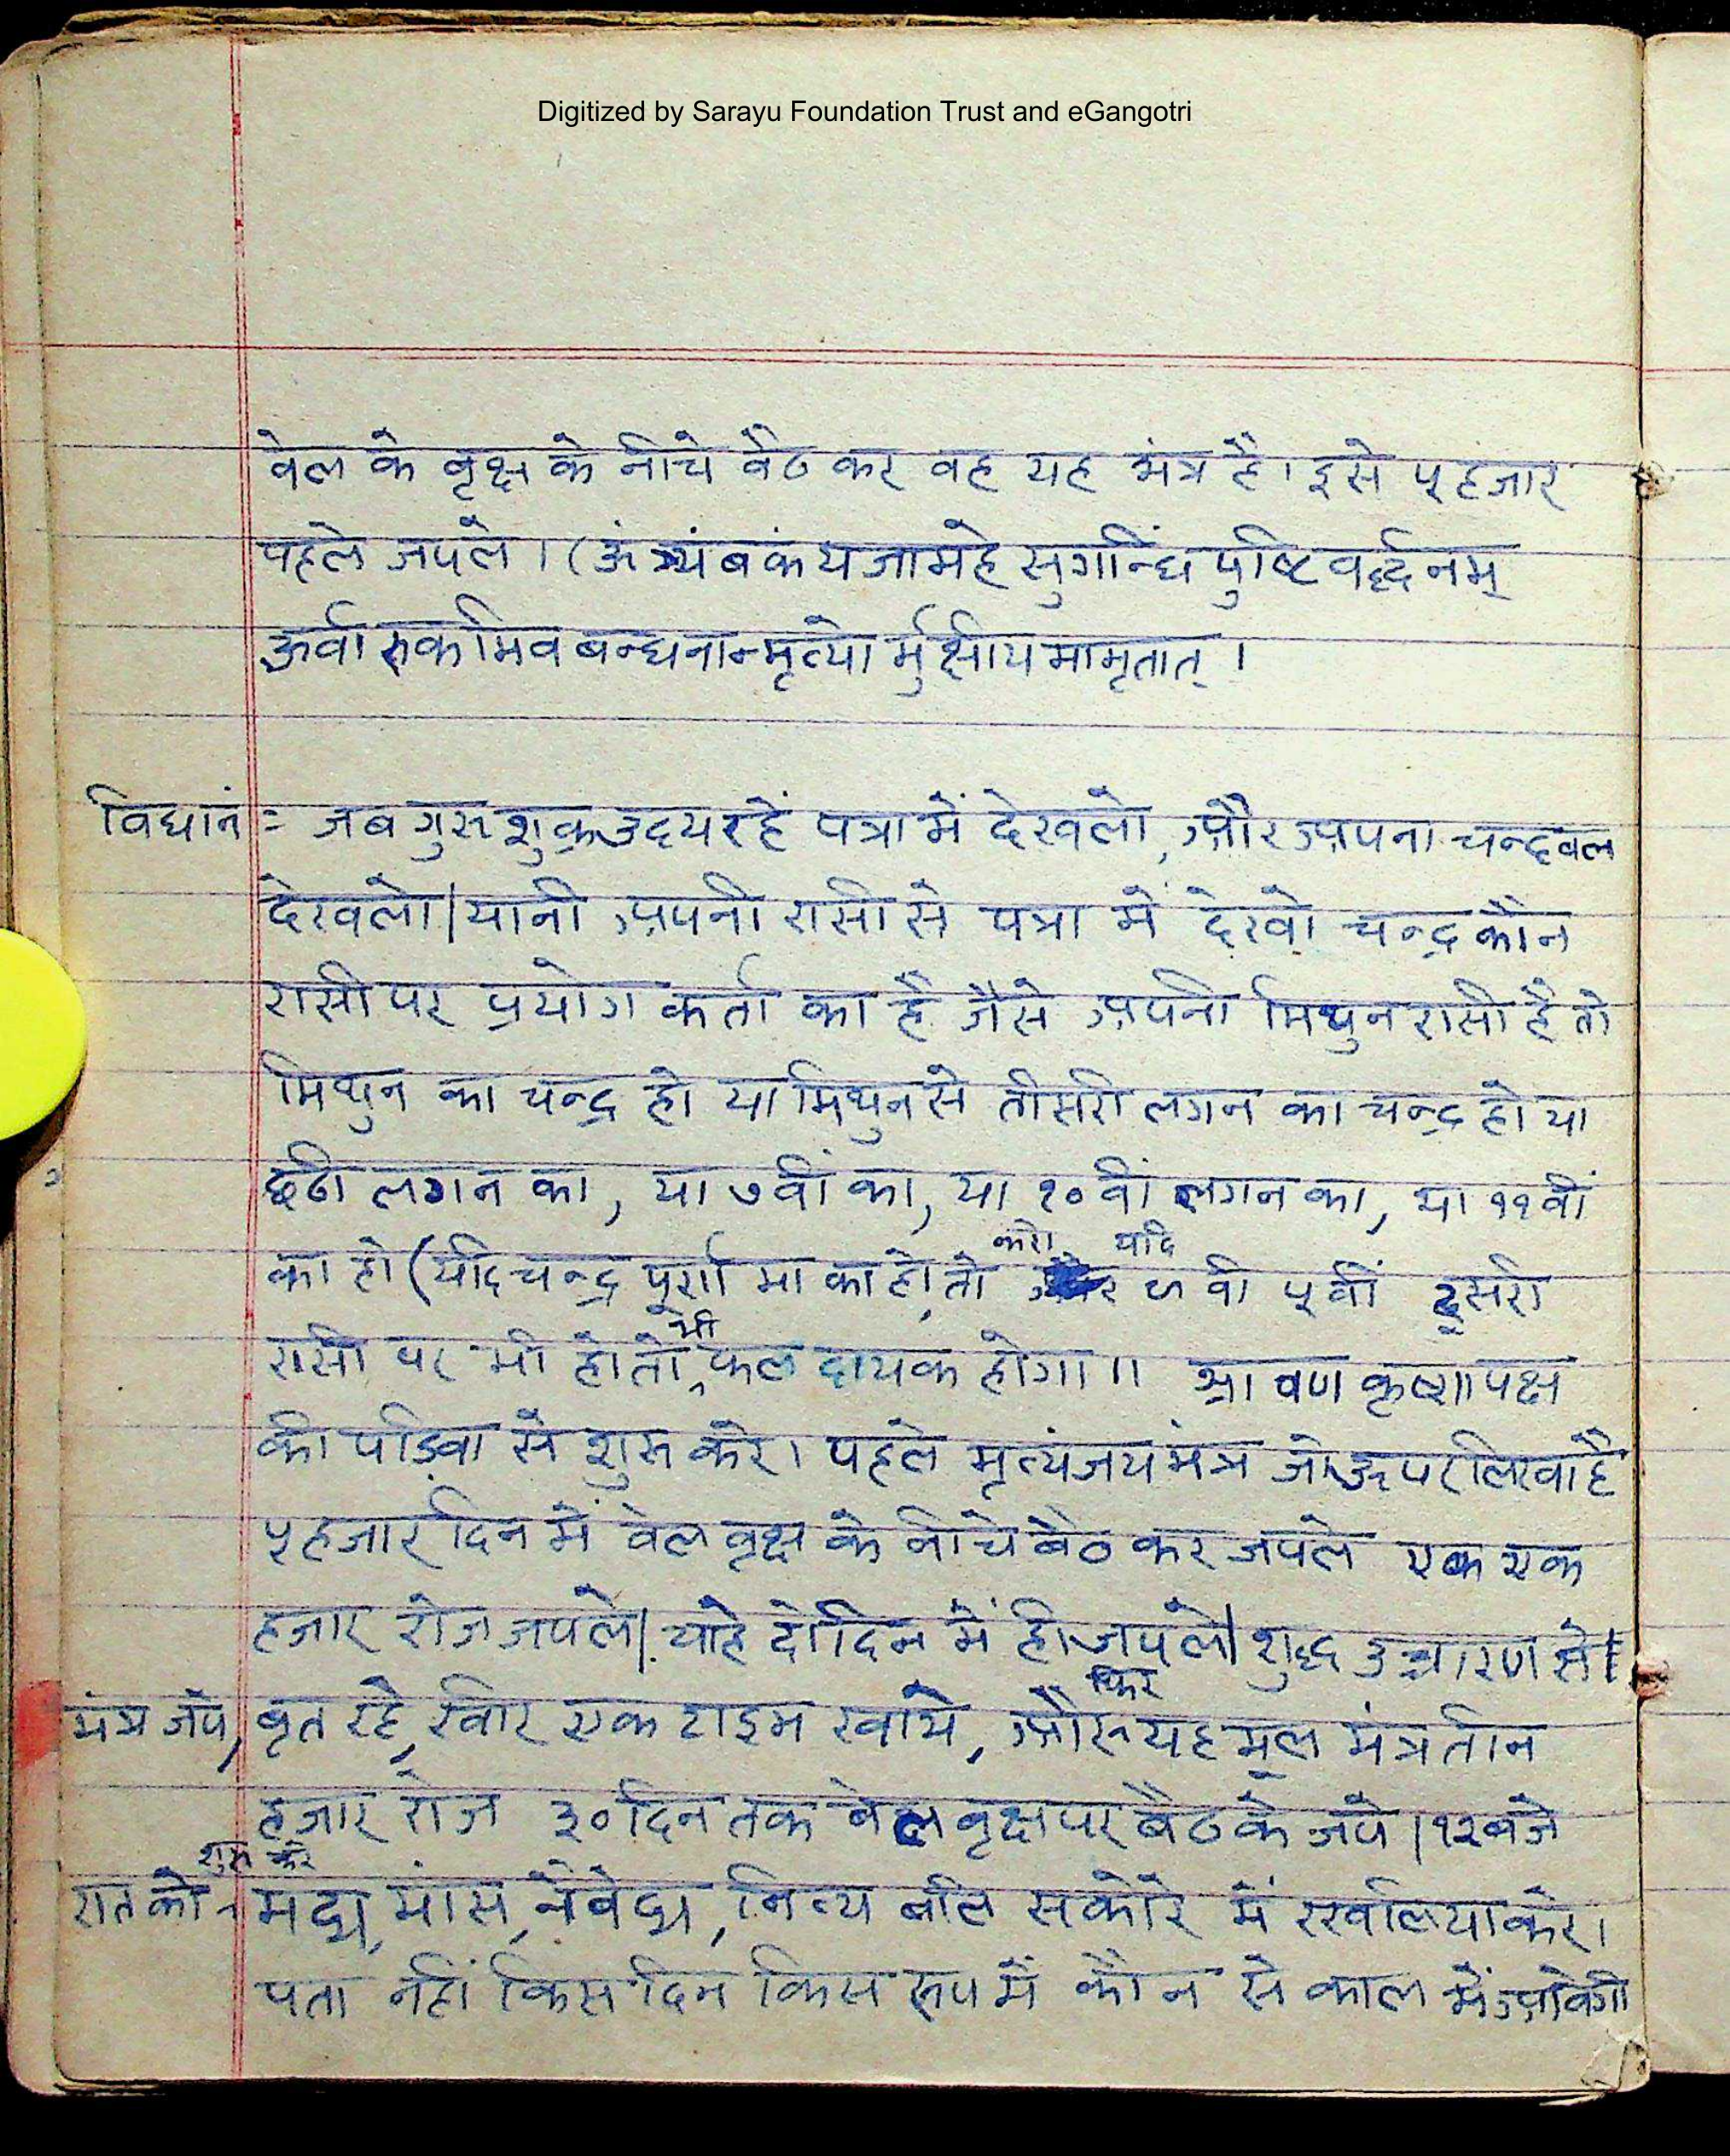 Digitized by Sarayu Foundation Trust and eGangotri
वेल के वृक्ष के नीचे वैठ कर वह यह मंत्र है। इसे ५हजार
पहले जपले । (ऊं त्र्यंबकं यजामहे सुगन्धिं पुष्टि वर्द्धनम्
ऊर्वा रुकमिव बन्धनान्मृत्यो र्मुक्षीय मामृतात् ।
विधानं = जब गुरु शुक्र उदय रहें पत्रा में देखलो, और अपना चन्द्रवल
देखलो। यानी अपनी रासी से पत्रा में देखो चन्द्र कौन
रासी पर प्रयोग कर्ता का है जैसे अपनी मिथुन रासी है तो
मिथुन का चन्द्र हो या मिथुन से तीसरी लगन का चन्द्र हो या
छठी लगन का, या ७वीं का, या १०वीं लगन का, या ११वीं
का हो (यदि चन्द्र पूर्णा मा का हो, तो करो यदि ९ वी ५वीं दूसरी
रासी पर भी हो तो, भी फल दायक होगा ॥ श्रावण कृष्ण पक्ष
की पड़िवा से शुरू करे। पहले मृत्यंजय मंत्र जो ऊपर लिखा है
५हजार दिन में वेल वृक्ष के नीचे बैठ कर जपले एक एक
हजार रोज जपले। चाहे दो दिन में ही जपले। शुद्ध उच्चारण से।
मंत्र जपे, वृत रहे, खीर एक टाइम खाये, और फिर यह मूल मंत्र तीन
हजार रोज ३०दिन तक बेल वृक्ष पर बैठ के जपे। १२बजे
रात को शुरू करे मद्य, मांस, नैवेद्य, नित्य बलि सकोरे में रखलिया करे।
पता नहीं किस दिन किस रूप में कौन से काल में आवेगी